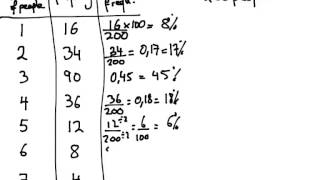 of people frequ.
1 16 16×100/200 = 8%
2 34 34/200 = 0,17 = 17%
3 90 0,45 = 45%
4 36 36/200 = 0,18 = 18%
5 12 12÷2/200÷2 = 6/100 = 6%
6 8
7 4